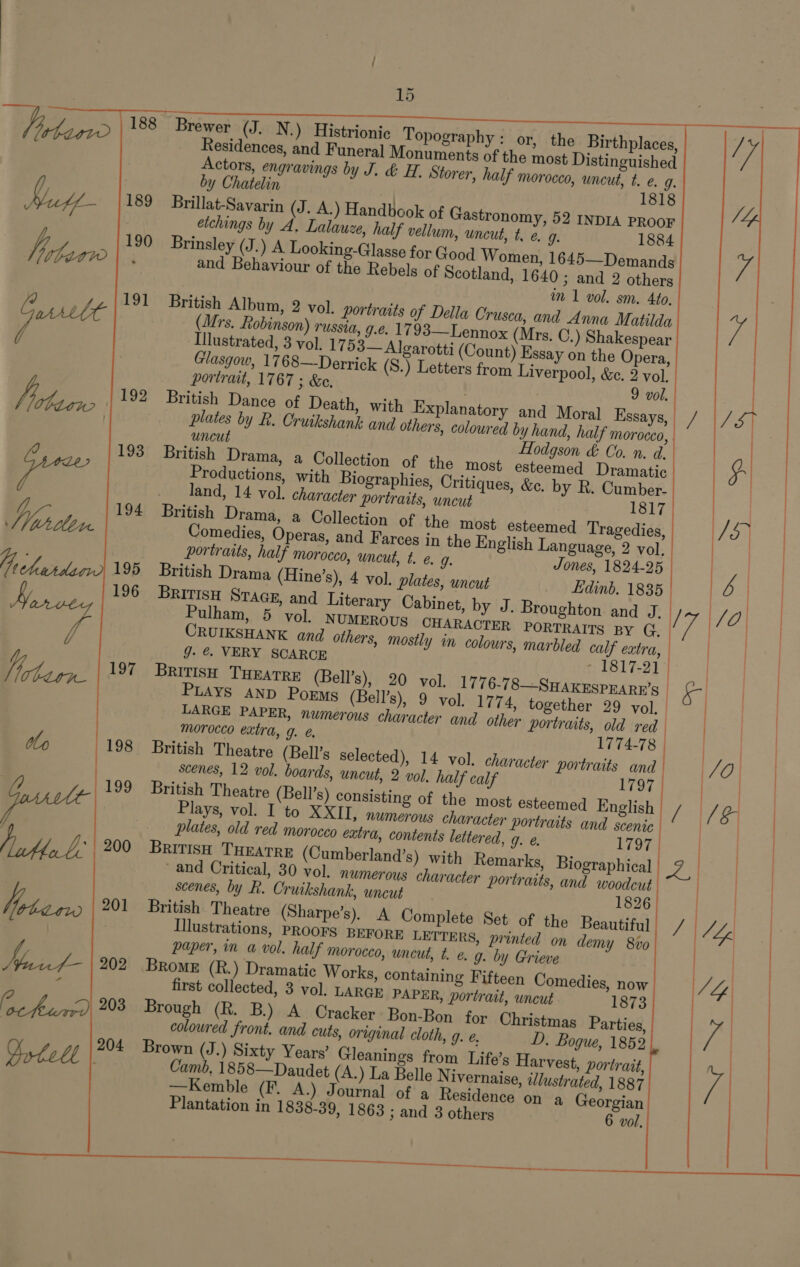 15
188 Brewer (J. N.) Histrionic Topography: or, the Birthplaces,
Residences, and Funeral Monuments of the most Distinguished
Actors, engravings by J. & H. Storer, half morocco, uncut, t. e. g.
by Chatelin 1818
189 Brillat-Savarin (J. A.) Handbook of Gastronomy, 52 INDIA PROOF
etchings by A. Lalauze, half vellum, uncut, t. e. g. 1884
190 Brinsley (J.) A Looking-Glasse for Good Women, 1645—Demands
and Behaviour of the Rebels of Scotland, 1640; and 2 others
in 1 vol. sm. 4to.
Garratt 191 British Album, 2 vol. portraits of Della Crusca, and Anna Matilda
(Mrs. Robinson) russia, g.e. 1793—Lennox (Mrs. C.) Shakespear
Illustrated, 3 vol. 1753—Algarotti (Count) Essay on the Opera,
Glasgow, 1768—Derrick (S.) Letters from Liverpool, &c. 2 vol.
portrait, 1767; &c. 9 vol.
192 British Dance of Death, with Explanatory and Moral Essays,
plates by R. Cruikshank and others, coloured by hand, half morocco,
uncut Hodgson & Co. n. d.
193 British Drama, a Collection of the most esteemed Dramatic
Productions, with Biographies, Critiques, &c. by R. Cumber-
land, 14 vol. character portraits, uncut 1817
194 British Drama, a Collection of the most esteemed Tragedies,
Comedies, Operas, and Farces in the English Language, 2 vol.
portraits, half morocco, uncut, t. e. g. Jones, 1824-25
Richardson 195 British Drama (Hine's), 4 vol. plates, uncut Edinb. 1835 6
Harvey 196 BRITISH STAGE, and Literary Cabinet, by J. Broughton and J.
Pulham, 5 vol. NUMEROUS CHARACTER PORTRAITS BY G. 17 10
CRUIKSHANK and others, mostly in colours, marbled calf extra,
g. e. VERY SCARCE 1817-21
197 BRITISH THEATRE (Bell's), 20 vol. 1776-78—SHAKESPEARE'S
PLAYS AND POEMS (Bell's), 9 vol. 1774, together 29 vol.
LARGE PAPER, numerous character and other portraits, old red
morocco extra, g. e. 1774-78
do 198 British Theatre (Bell's selected), 14 vol. character portraits and
scenes, 12 vol. boards, uncut, 2 vol. half calf 1797 10
199 British Theatre (Bell's) consisting of the most esteemed English
Plays, vol. I to XXII, numerous character portraits and scenic
plates, old red morocco extra, contents lettered, g. e. 1797
200 BRITISH THEATRE (Cumberland's) with Remarks, Biographical
and Critical, 30 vol. numerous character portraits, and woodcut
scenes, by R. Cruikshank, uncut 1826
201 British Theatre (Sharpe's). A Complete Set of the Beautiful
Illustrations, PROOFS BEFORE LETTERS, printed on demy 8vo
paper, in a vol. half morocco, uncut, t. e. g. by Grieve
202 BROME (R.) Dramatic Works, containing Fifteen Comedies, now
first collected, 3 vol. LARGE PAPER, portrait, uncut 1873
203 Brough (R. B.) A Cracker Bon-Bon for Christmas Parties,
coloured front. and cuts, original cloth, g. e. D. Bogue, 1852
204 Brown (J.) Sixty Years' Gleanings from Life's Harvest, portrait,
Camb, 1858—Daudet (A.) La Belle Nivernaise, illustrated, 1887
—Kemble (F. A.) Journal of a Residence on a Georgian
Plantation in 1838-39, 1863; and 3 others 6 vol.